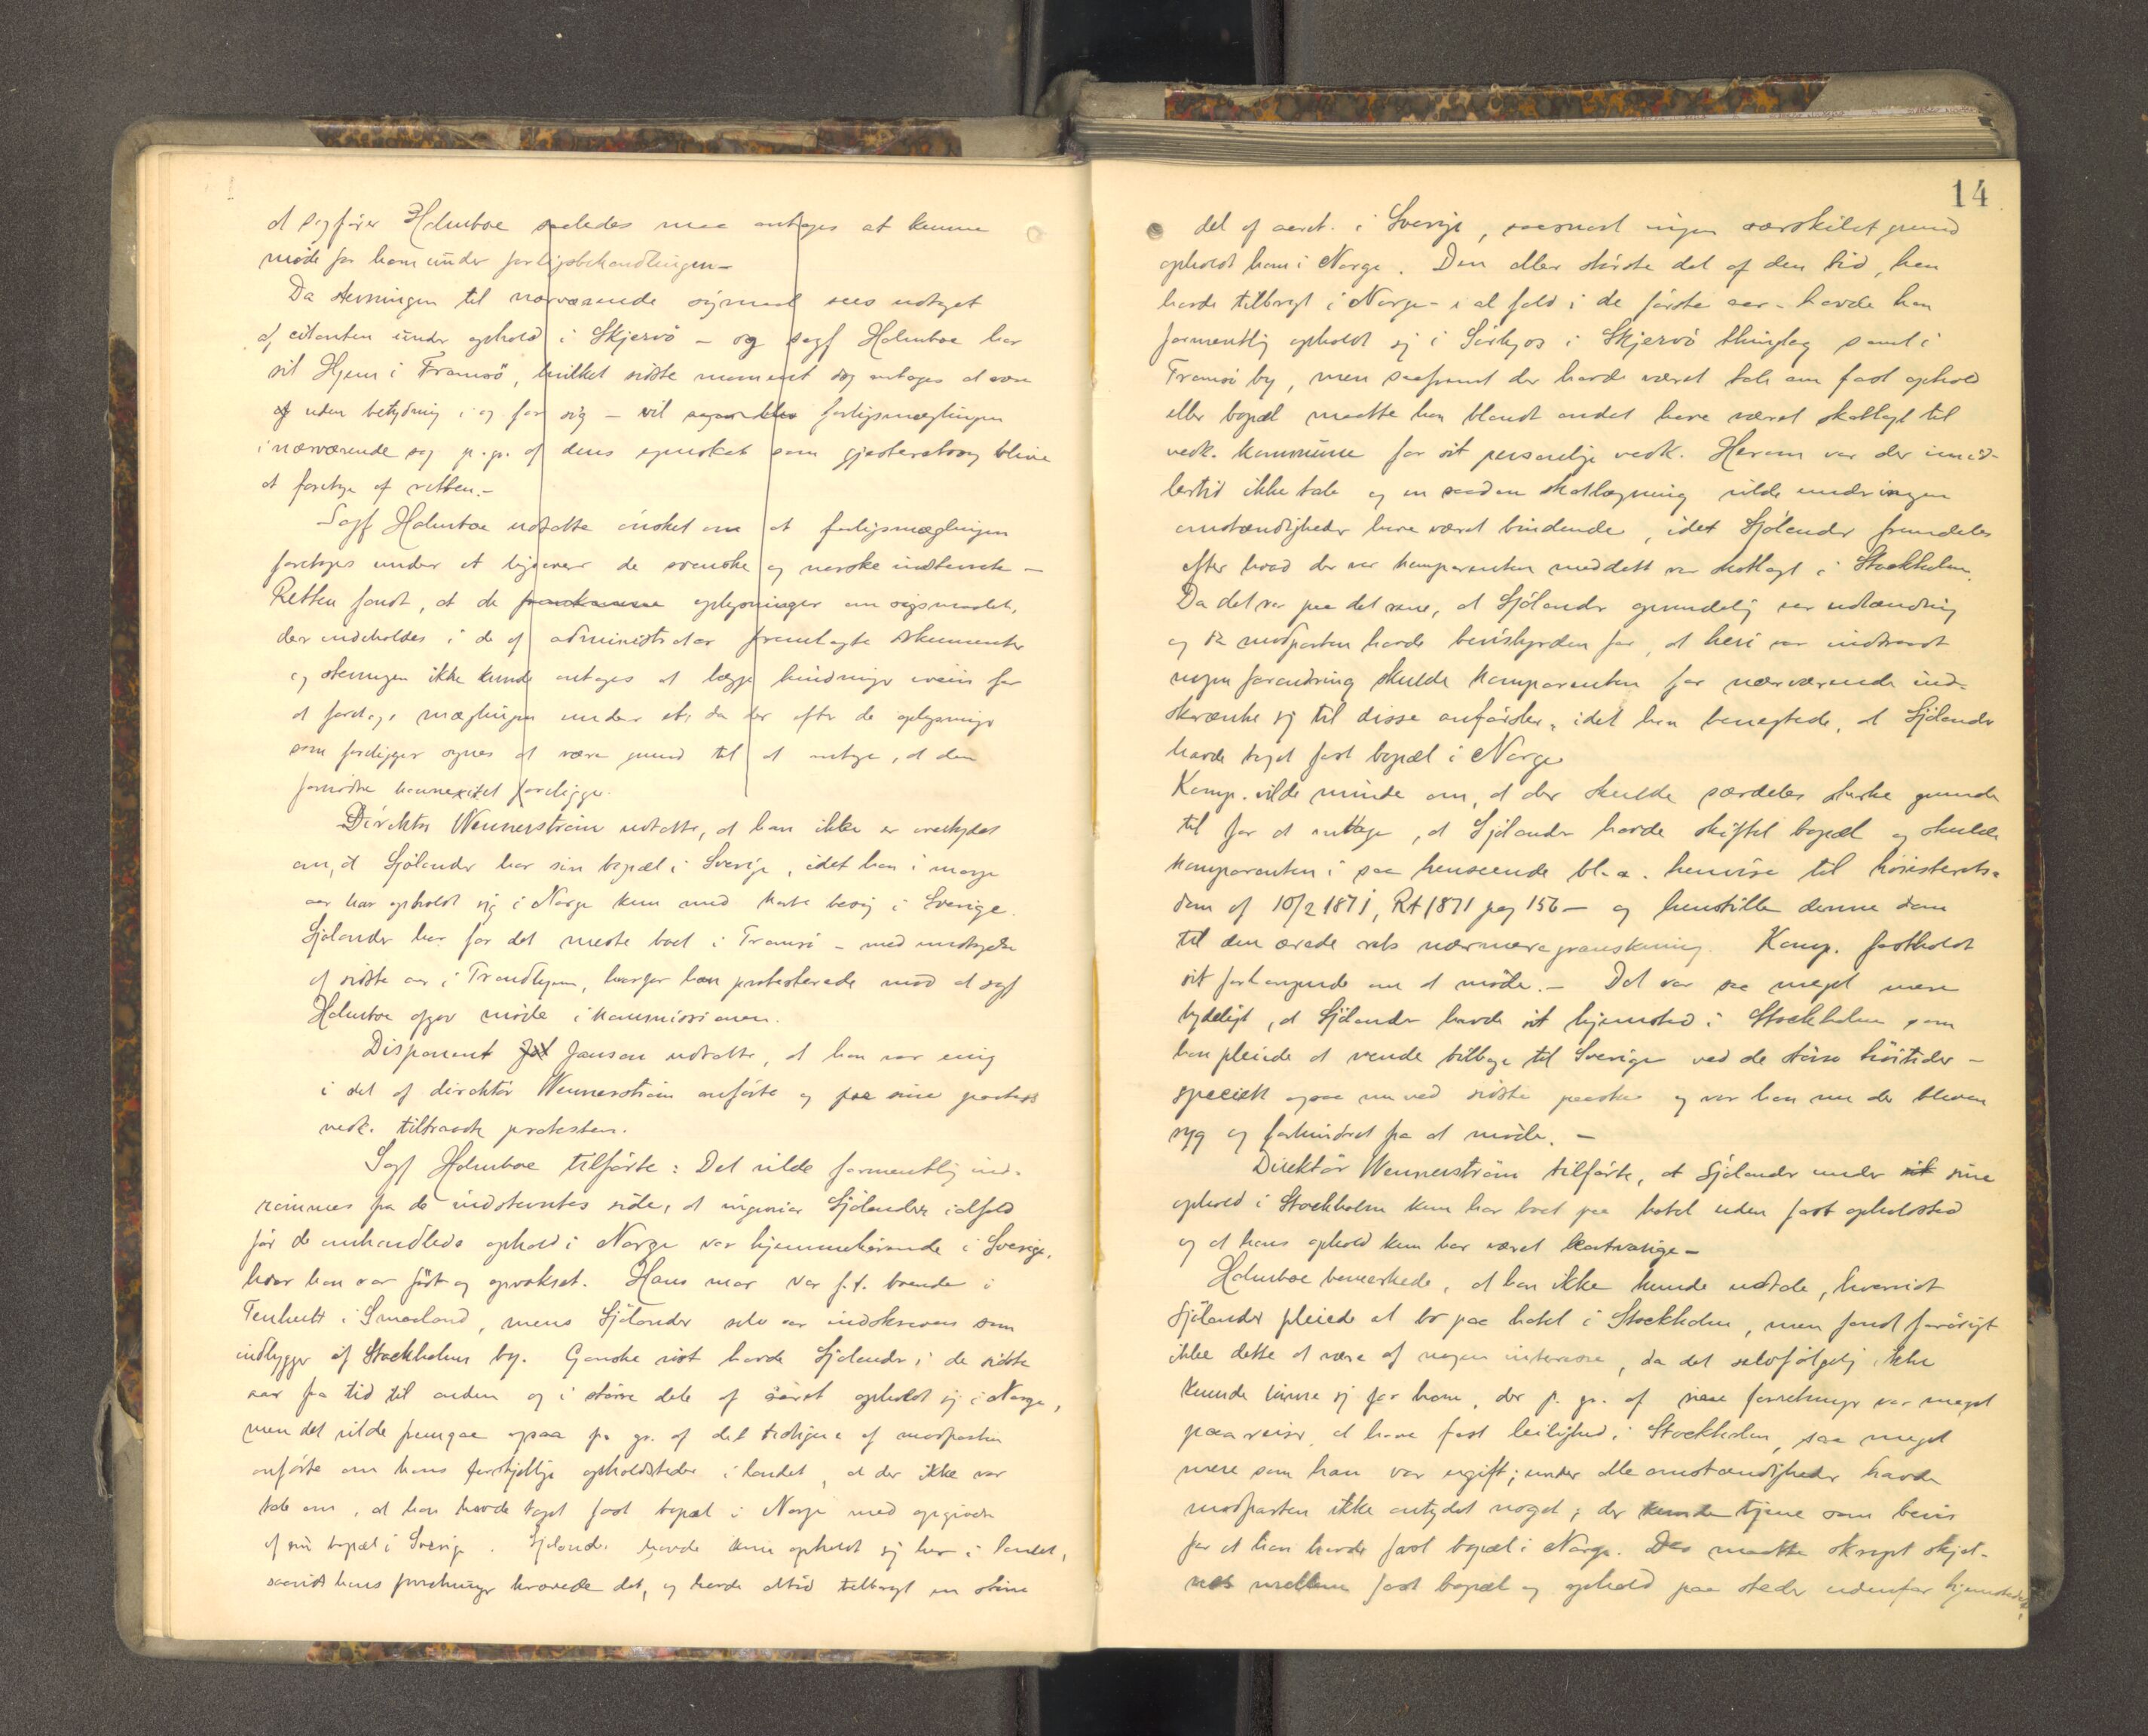 at sagfører Holmboe saaledes maa antages at kunne
møde for ham under forligsbehandlingen –
Da stevningen til nærværende søgsmaal sees udtaget
af citanten under ophold i Skjervø – og sagf Holmboe har
sit Hjem i Tromsø, hvilket sidste moment dog antages at være
uden betydning i og for sig – vil forligsmæglingen
i nærværende sag p.gr. af dens egenskab som gjesteretssag blive
at foretage af retten. –
Sagf Holmboe udtalte ønsket om at forligsmæglingen
foretages under et ligeover de svenske og norske indstevnte –
Retten fandt, at de oplysninger om søgsmaalet,
der indeholdes i de af administrator fremlagte dokumenter
og stevningen ikke kunde antages at lægge hindringer iveien for
at foretage mæglingen under et, da der efter de oplysninger
som foreligger synes at være grund til at antage, at den
fornødne konnexitet foreligger.
Direktør Wennerström udtalte, at han ikke er overtydet
om, at Sjölander har sin bopæl i Sverige, idet han i mange
aar har opholdt sig i Norge kun med korte besøg i Sverige.
Sjölander har for det meste boet i Tromsø – med undtagelse
af sidste aar i Trondhjem, hvorfor han protesterede mod at sagf
Holmboe afgav møde i kommissionen.
Disponent Janson udtalte, at han var enig
i det af direktör Wennerström anførte og paa sine parters
vedk. tiltraadte protesten.
Sagf Holmboe tilførte: Det vilde formentlig ind-
rømmes fra de indstevntes side, at ingeniør Sjölander ialfald
før de omhandlede ophold i Norge var hjemmehørende i Sverige,
hvor han var født og opvokset. Hans mor var f.t. boende i
Tenhult i Smaaland, mens Sjölander selv var indskreven som
indbygger af Stockholms by. Ganske vist havde Sjölander i de sidste
aar fra tid til anden og i større dele af aaret opholdt sig i Norge,
men det vilde fremgaa ogsaa paa gr. af det tidligere af modparten
anførte om hans forskjellige opholdssteder i landet, at der ikke var
tale om, at han havde taget fast bopæl i Norge med opgivelse
af sin bopæl i Sverige. Sjölander havde kun opholdt sig her i landet,
saavidt hans forretninger krævede det, og havde altid tilbragt en større
14
del af aaret i Sverige, saasnart ingen særskilt grund
opholdt ham i Norge. Den aller største del af den tid, han
havde tilbragt i Norge – i al fald i de første aar – havde han
formentlig opholdt sig i Sørkjos i Skjervø thinglag samt i
Tromsø by, men saafremt der havde været tale om fast ophold
eller bopæl maatte han blandt andet have været skatlagt til
vedk. kommune for sit personlige vedk. Herom var der imid-
lertid ikke tale og en saadan skatlægning vilde under ingen
omstændigheder have været bindende, idet Sjölander fremdeles
efter hvad der var komparenten meddelt var skatlagt i Stockholm.
Da det var paa det rene, at Sjölander oprindelig var udlænding
og da modparten havde bevisbyrden for, at heri var indtraadt
nogen forandring skulde komparenten for nærværende ind-
skrænke sig til disse anførsler, idet han benegtede, at Sjölander
havde taget fast bopæl i Norge
Komp. vilde minde om, at der skulde særdeles sterke grunde
til for at antage, at Sjölander havde skiftet bopæl og skulde
komparenten i saa henseende bl.a. henvise til høiesterets-
dom af 10/2 1871, Rt 1871 pag 156 – og henstille denne dom
til den ærede rets nærmere granskning. Komp. fastholdt
sit forlangende om at møde. – Det var saa meget mere
tydeligt, at Sjölander havde sit hjemsted i Stockholm som
han pleiede at vende tilbage til Sverige ved de større høitider –
specielt ogsaa nu ved sidste paaske og var han nu der bleven
syg og forhindret fra at møde. –
Direktör Wennerström tilførte, at Sjölander under sine
ophold i Stockholm kun har boet paa hotel uden fast opholdssted
og at hans ophold kun har været kortvarige –
Holmboe bemærkede, at han ikke kunde udtale, hvorvidt
Sjölander pleiede at bo paa hotel i Stockholm, men fandt forøvrigt
ikke dette at være af nogen interesse, da det selvfølgelig ikke
kunde lønne sig for ham, der p. gr. af sine forretninger var meget
paa reiser, at have fast leilighed i Stockholm, saa meget
mere som han var ugift; under alle omstændigheder havde
modparten ikke antydet noget, der kunde tjene som bevis
for at han havde fast bopæl i Norge. Der maatte skarpt skjel-
nes mellem fast bopæl og ophold paa steder udenfor hjemstedet,